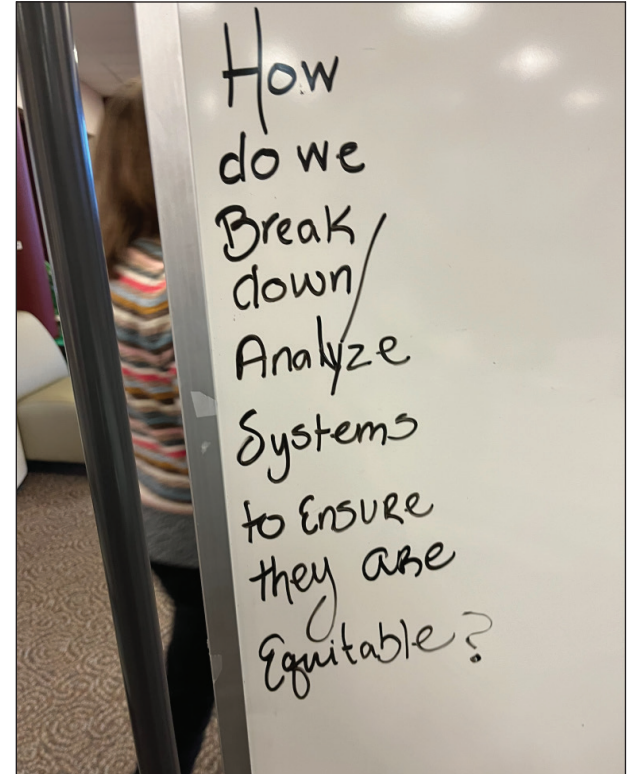 How
do we
Break /
down
Analyze
Systems
to EnsuRe
they aRe
Equitable?